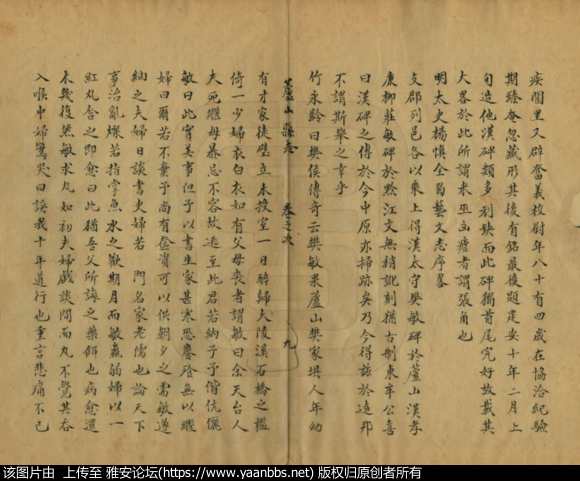 疾閭里又辟奮義校尉年八十有四歲在協洽紀驗
期臻奄忽藏形其後有銘最後題建安十年二月上
旬造他漢碑類多刓缺而此碑獨首尾完好故載其
大畧於此所謂米巫凶瘧者謂張角也
明太史楊慎全蜀藝文志序畧
支郡列邑各以乘上得漢太守樊敏碑於蘆山漢孝
廉柳莊敏碑於黔江文無梢訛刻猶古制東阜公喜
曰漢碑之傳於今中原亦掃跡矣乃今得茲於遠邦
不謂斯舉之幸乎
竹永齡曰樊侯傳奇云樊敏果蘆山樊家垻人年幼
蘆山縣志 卷之次 九
有才家徒壁立未授室一日醉歸夫陵溪石橋之檻
倚一少婦衣白衣如有父母喪者謂敏曰余天台人
夫死繼母暴忌不容故逃至此君若納予予偕伉儷
敏曰此實美事但予以書生家甚寒恐饔飱無以繼
婦曰爾若不棄予尚有奩資可以供朝夕之需敏遂
納之夫婦日談書史婦若 門名家老儒也論天下
事治亂燦若指掌魚水之歡期月而敏羸弱婦以一
紅丸含之即愈曰此猶吾父所誨之藥餌也病愈還
未幾復羸敏求丸如初夫婦戲談間而丸不覺其吞
入喉中婦驚哭曰誤我十年道行也重言悲痛不已
该图片由 上传至 雅安论坛(https://www.yaanbbs.net) 版权归原创者所有